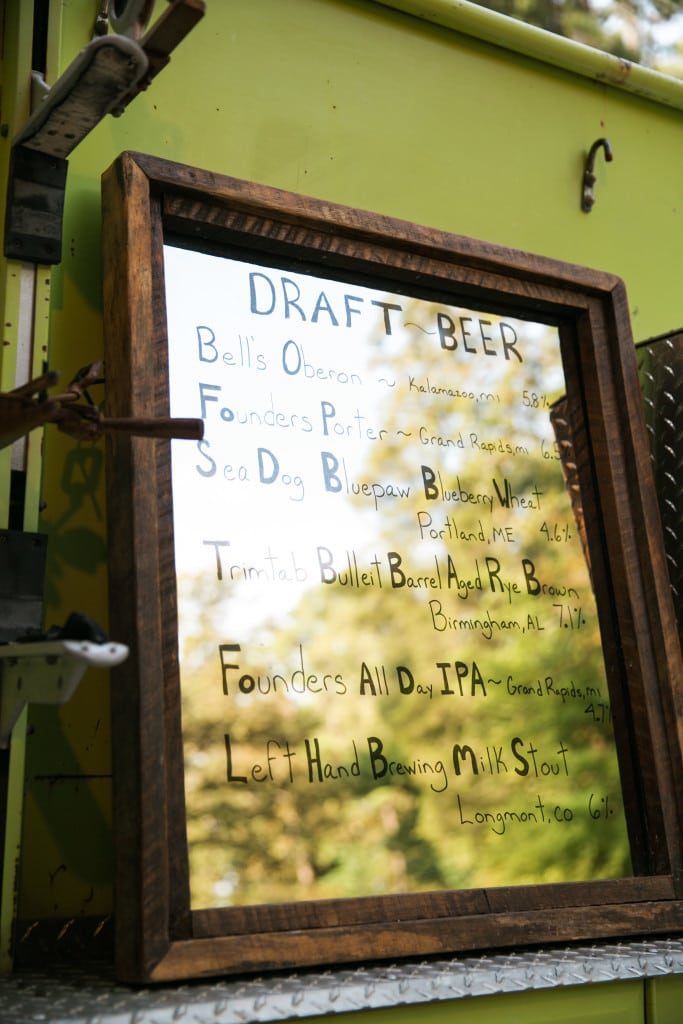 DRAFT ~ BEER
Bell's Oberon ~ Kalamazoo, mi 5.8%
Founders Porter ~ Grand Rapids, mi 6.5
Sea Dog Bluepaw Blueberry Wheat
Portland, ME 4.6%
Trimtab Bulleit Barrel Aged Rye Brown
Birmingham, AL 7.1%
Founders All Day IPA ~ Grand Rapids, mi
4.7%
Left Hand Brewing Milk Stout
Longmont, CO 6%